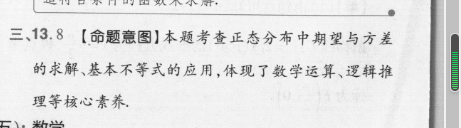 三、13.8 【命题意图】本题考查正态分布中期望与方差
的求解、基本不等式的应用,体现了数学运算、逻辑推
理等核心素养.
五):数学